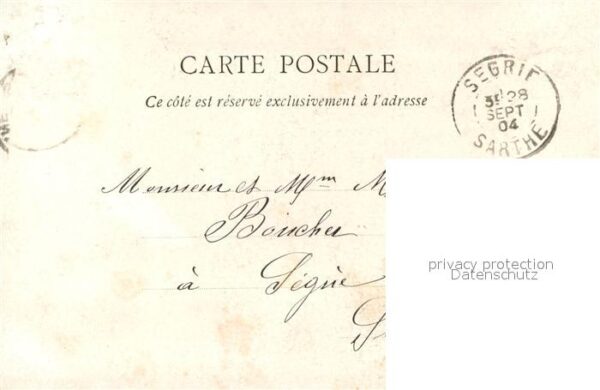 CARTE POSTALE
Ce côté est réservé exclusivement à l'adresse
SEGRIE
28
SEPT
04
SARTHE
Monsieur et Mme M
Boucher
à Ségrie
S
privacy protection
Datenschutz